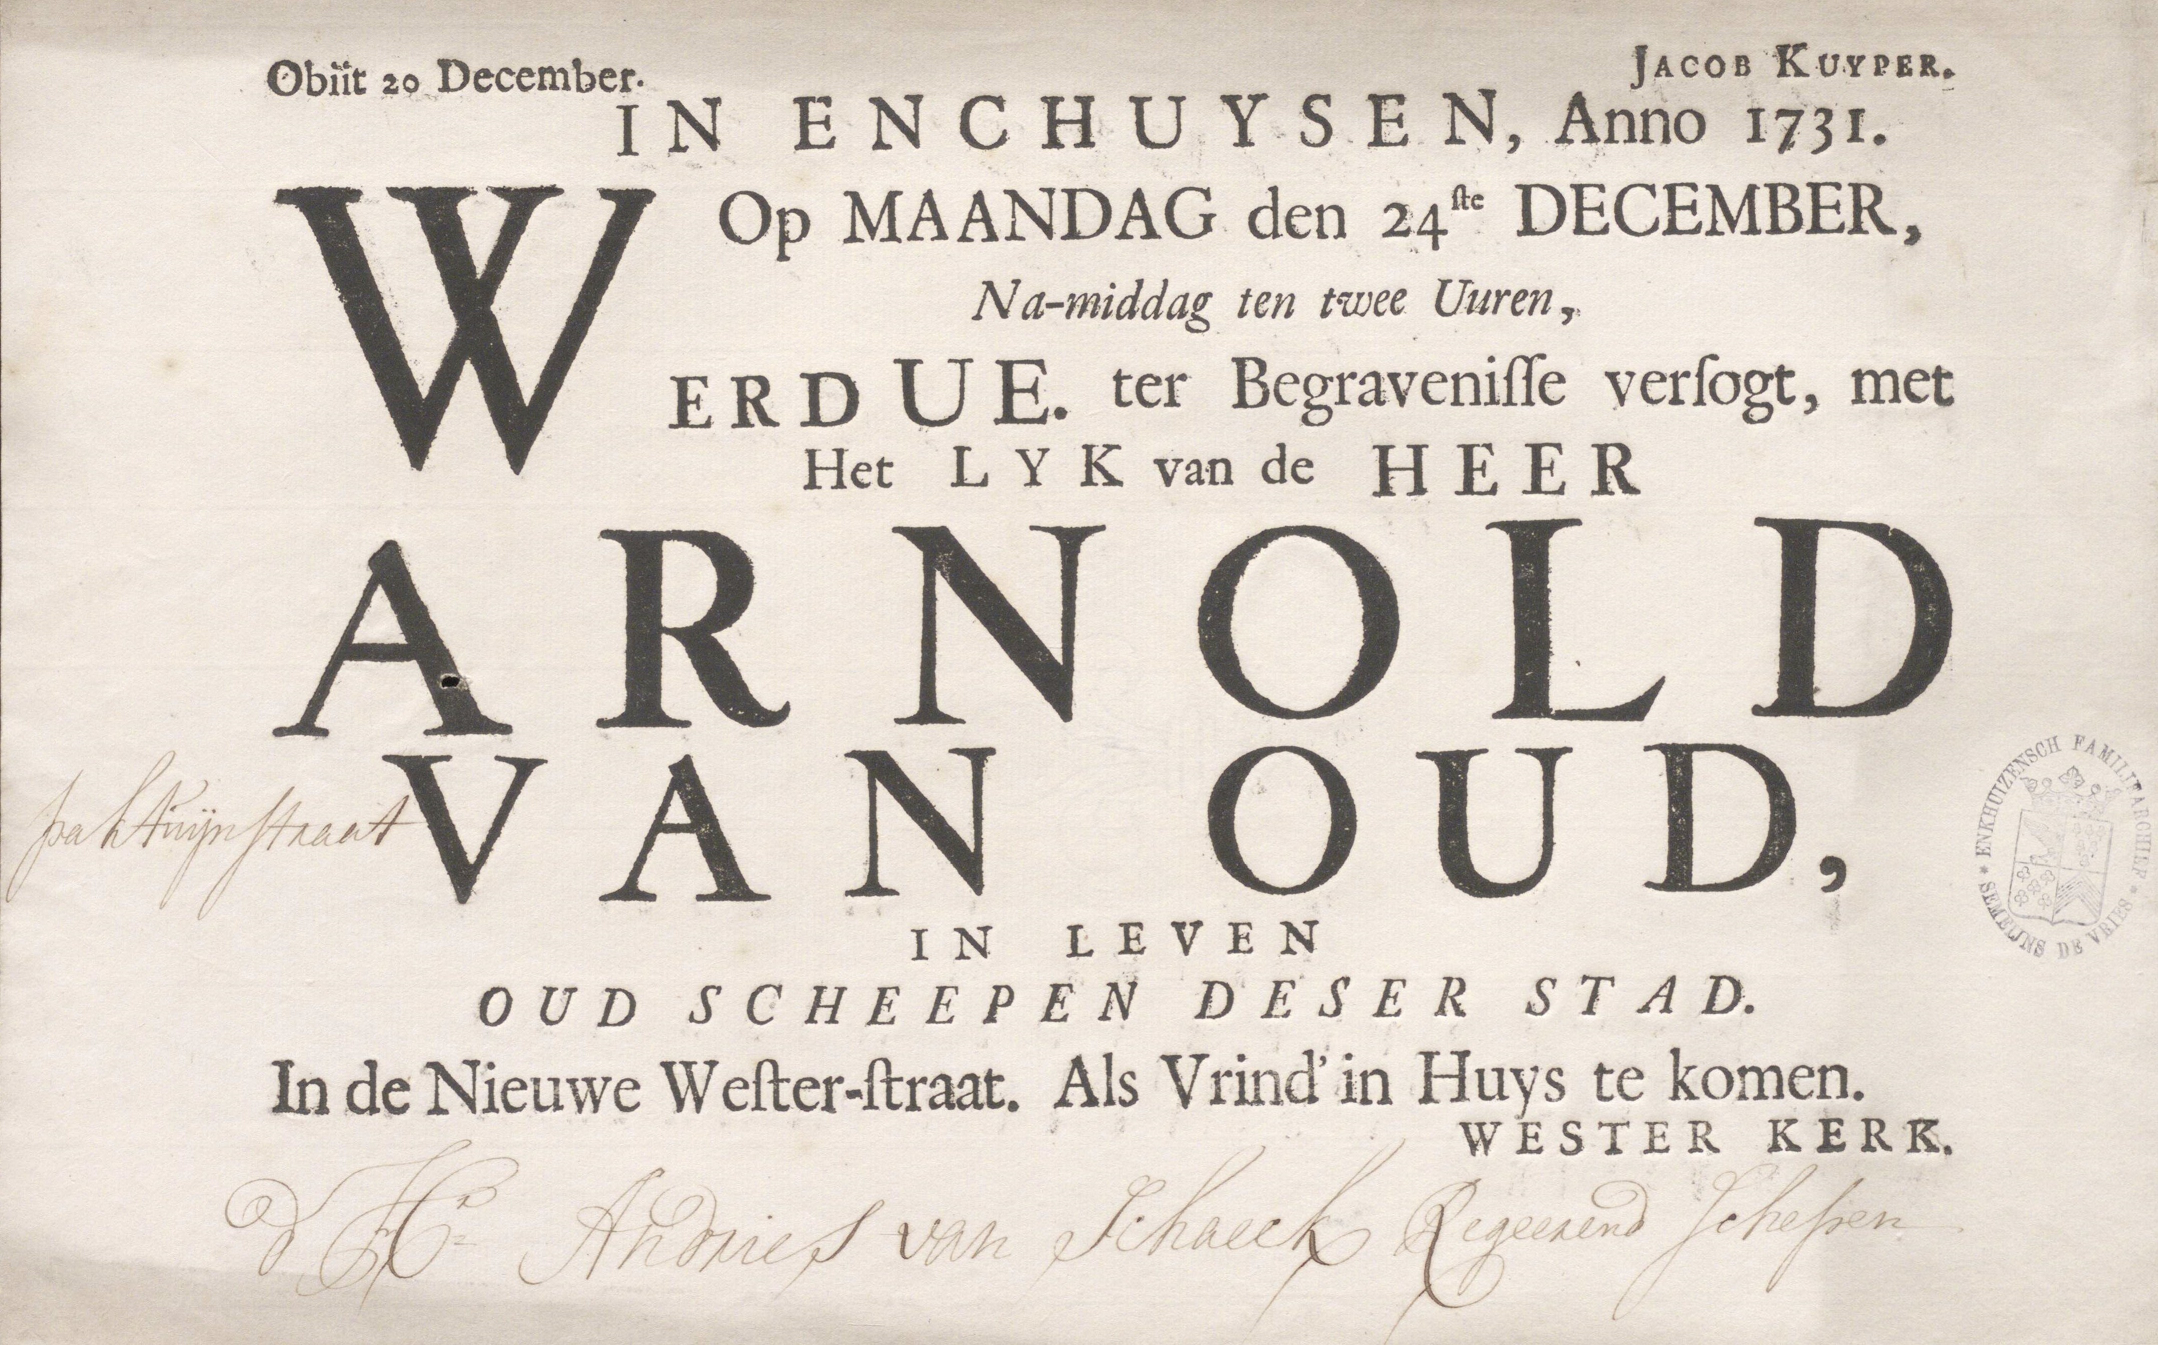 Obiit 20 December.
JACOB KUYPER.
IN ENCHUYSEN, Anno 1731.
Op MAANDAG den 24ſte DECEMBER,
Na-middag ten twee Uuren,
WERDUE. ter Begraveniſſe verſogt, met
Het LYK van de HEER
ARNOLD
VAN OUD,
IN LEVEN
OUD SCHEEPEN DESER STAD.
In de Nieuwe Weſter-ſtraat. Als Vrind' in Huys te komen.
WESTER KERK.
d Hr Andries van Schaeck Regeerend Schepen
ENKHUIZENSCH FAMILIEARCHIEF
SEMEIJNS DE VRIES